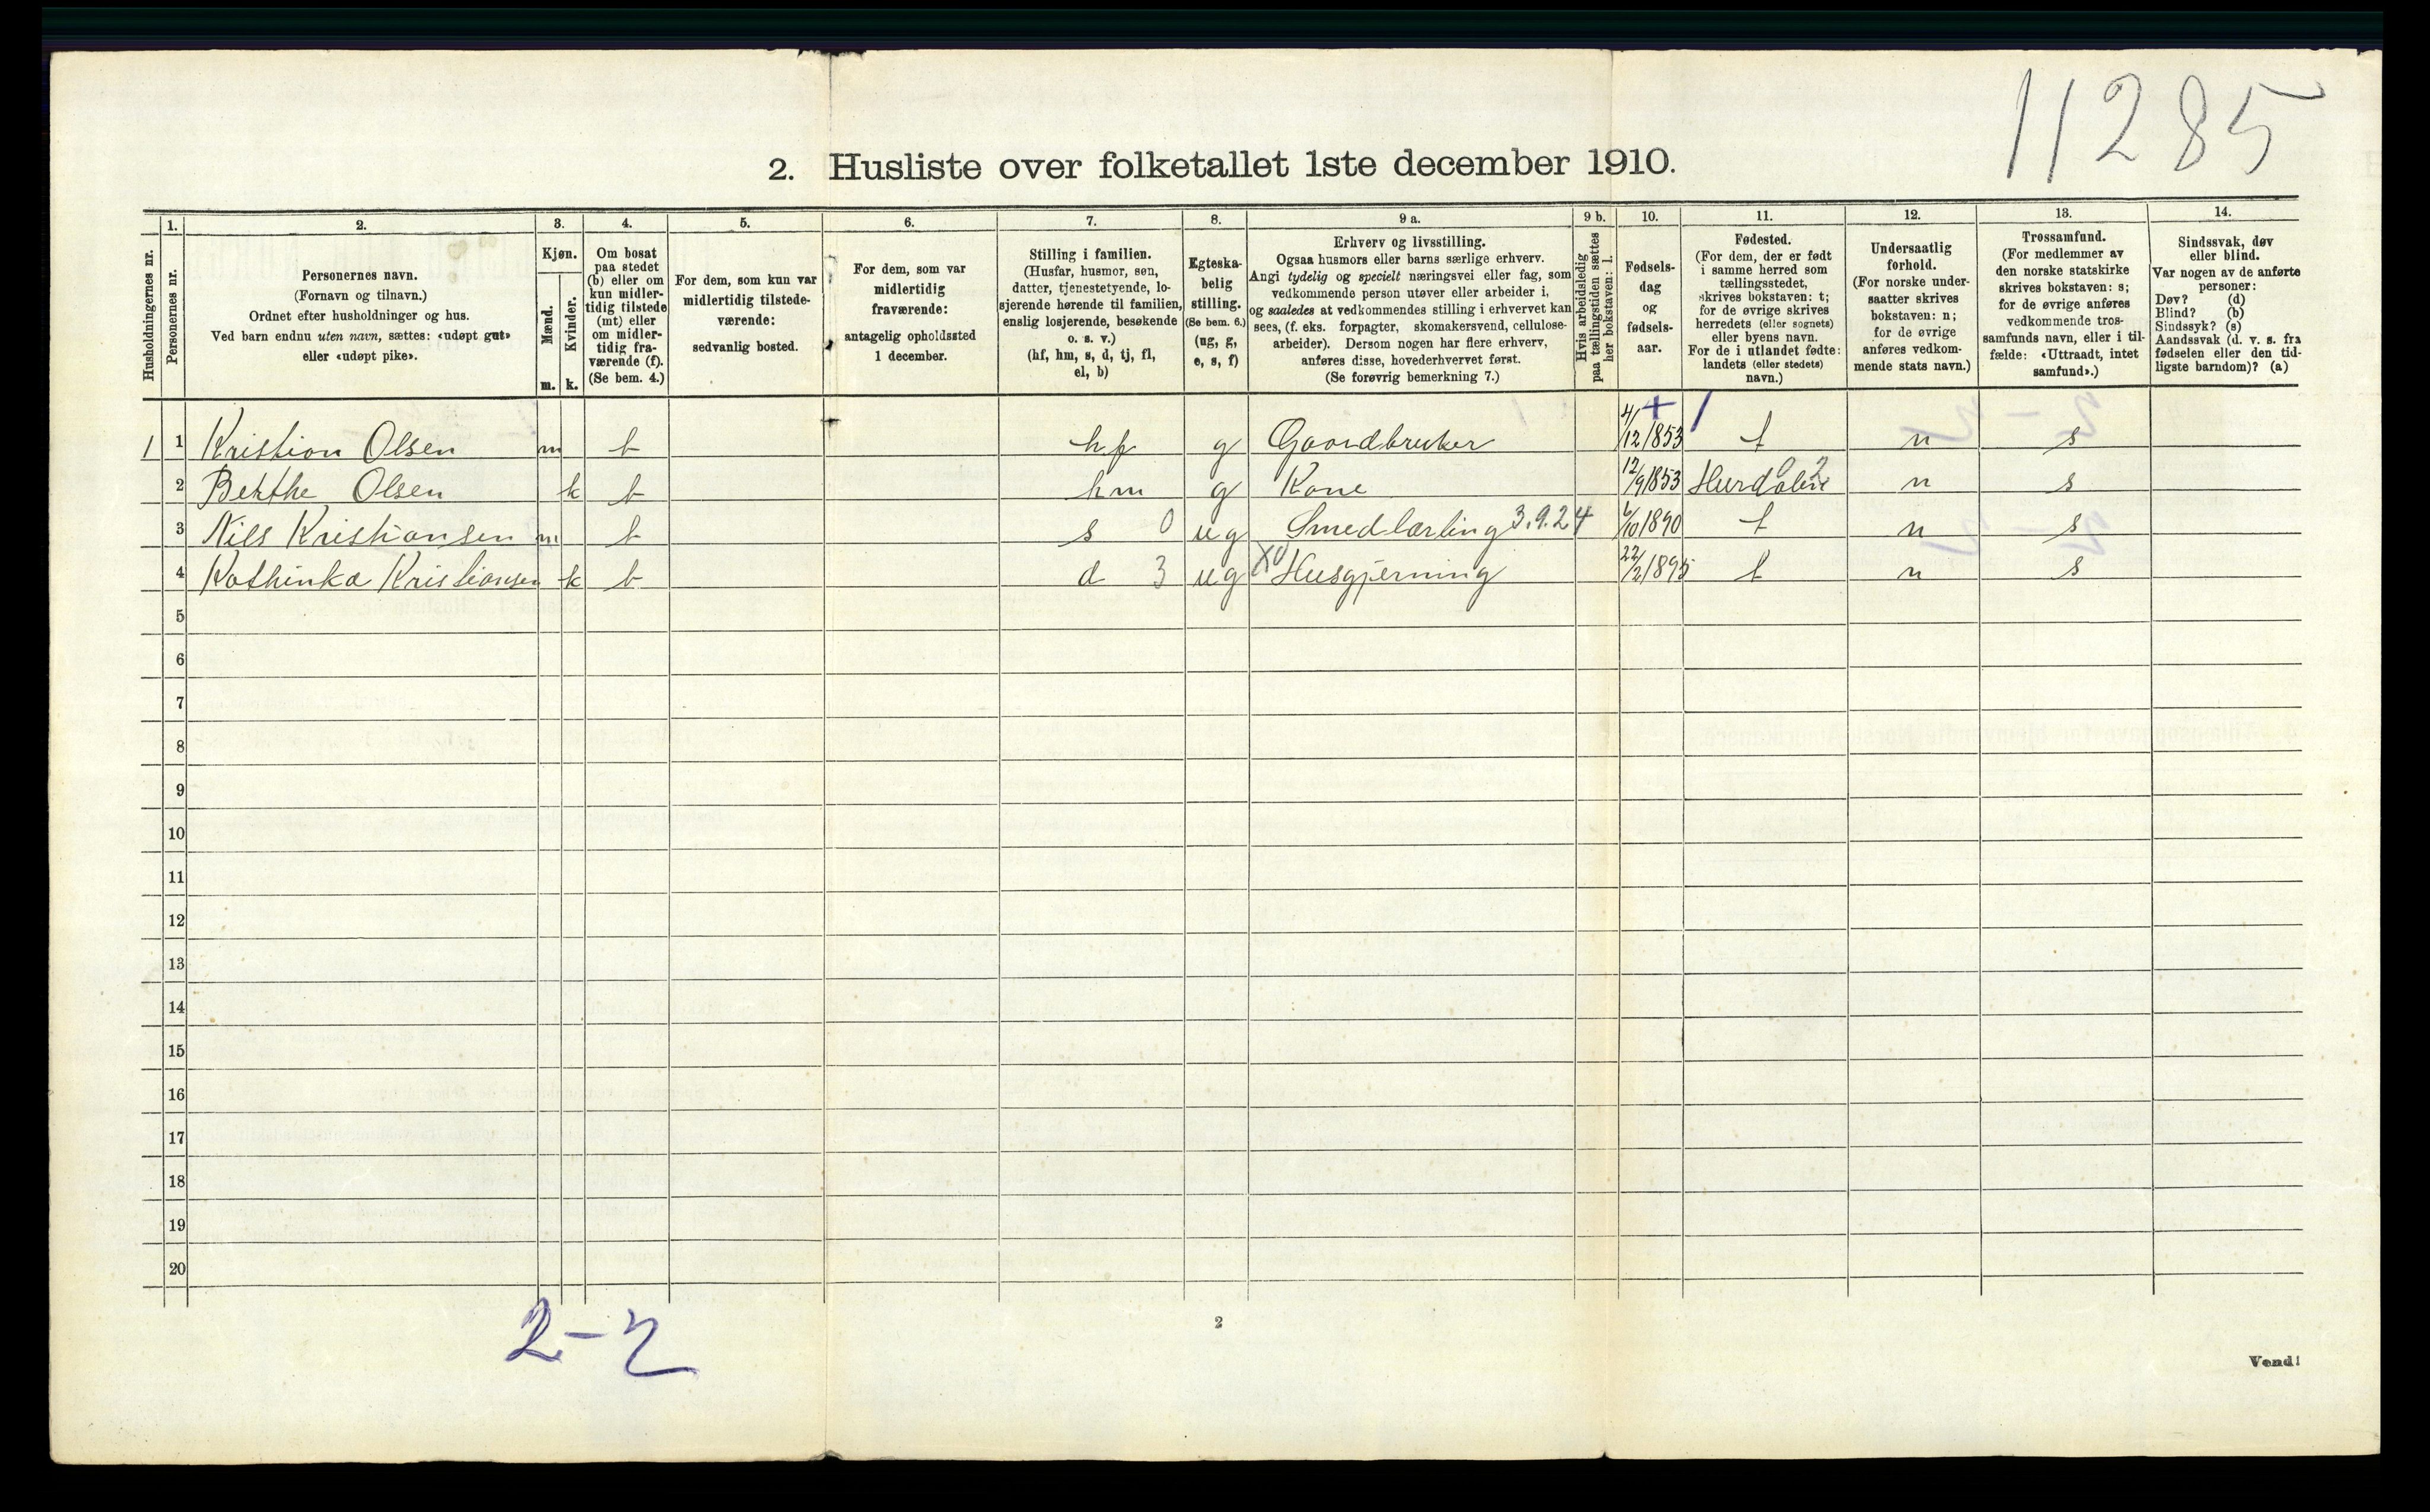 11285
2. Husliste over folketallet 1ste december 1910.
Husholdningernes nr.
1.
Personernes nr.
2.
Personernes navn.
(Fornavn og tilnavn.)
Ordnet efter husholdninger og hus.
Ved barn endnu uten navn, sættes: «udøpt gut»
eller «udøpt pike».
3.
Kjøn.
Mænd.
Kvinder.
m. k.
4.
Om bosat
paa stedet
(b) eller om
kun midler-
tidig tilstede
(mt) eller
om midler-
tidig fra-
værende (f).
(Se bem. 4.)
5.
For dem, som kun var
midlertidig tilstede-
værende:
sedvanlig bosted.
6.
For dem, som var
midlertidig
fraværende:
antagelig opholdssted
1 december.
7.
Stilling i familien.
(Husfar, husmor, søn,
datter, tjenestetyende, lo-
sjerende hørende til familien,
enslig losjerende, besøkende
o. s. v.)
(hf, hm, s, d, tj, fl,
el, b)
8.
Egteska-
belig
stilling.
(Se bem. 6.)
(ug, g,
e, s, f)
9 a.
Erhverv og livsstilling.
Ogsaa husmors eller barns særlige erhverv.
Angi tydelig og specielt næringsvei eller fag, som
vedkommende person utøver eller arbeider i,
og saaledes at vedkommendes stilling i erhvervet kan
sees, (f. eks. forpagter, skomakersvend, cellulose-
arbeider). Dersom nogen har flere erhverv,
anføres disse, hovederhvervet først.
(Se forøvrig bemerkning 7.)
9 b.
Hvis arbeidsledig
paa tællingstiden sættes
her bokstaven: l.
10.
Fødsels-
dag
og
fødsels-
aar.
11.
Fødested.
(For dem, der er født
i samme herred som
tællingsstedet,
skrives bokstaven: t;
for de øvrige skrives
herredets (eller sognets)
eller byens navn.
For de i utlandet fødte:
landets (eller stedets)
navn.)
12.
Undersaatlig
forhold.
(For norske under-
saatter skrives
bokstaven: n;
for de øvrige
anføres vedkom-
mende stats navn.)
13.
Trossamfund.
(For medlemmer av
den norske statskirke
skrives bokstaven: s;
for de øvrige anføres
vedkommende tros-
samfunds navn, eller i til-
fælde: «Uttraadt, intet
samfund».)
14.
Sindssvak, døv
eller blind.
Var nogen av de anførte
personer:
Døv? (d)
Blind? (b)
Sindssyk? (s)
Aandssvak (d. v. s. fra
fødselen eller den tid-
ligste barndom)? (a)
1 1 Kristian Olsen m b hf g Gaardbruker 4/12 1853 t n s
2 Berthe Olsen k b hm g Kone 12/9 1853 Hurdalen 2 n s
3 Nils Kristiansen m b s 0 ug Smedlærling 3.9.24 6/10 1890 t n s
4 Kathinka Kristiansen k b d 3 ug Husgjerning 22/2 1895 t n s
5
6
7
8
9
10
11
12
13
14
15
16
17
18
19
20
2-2
2
Vend!